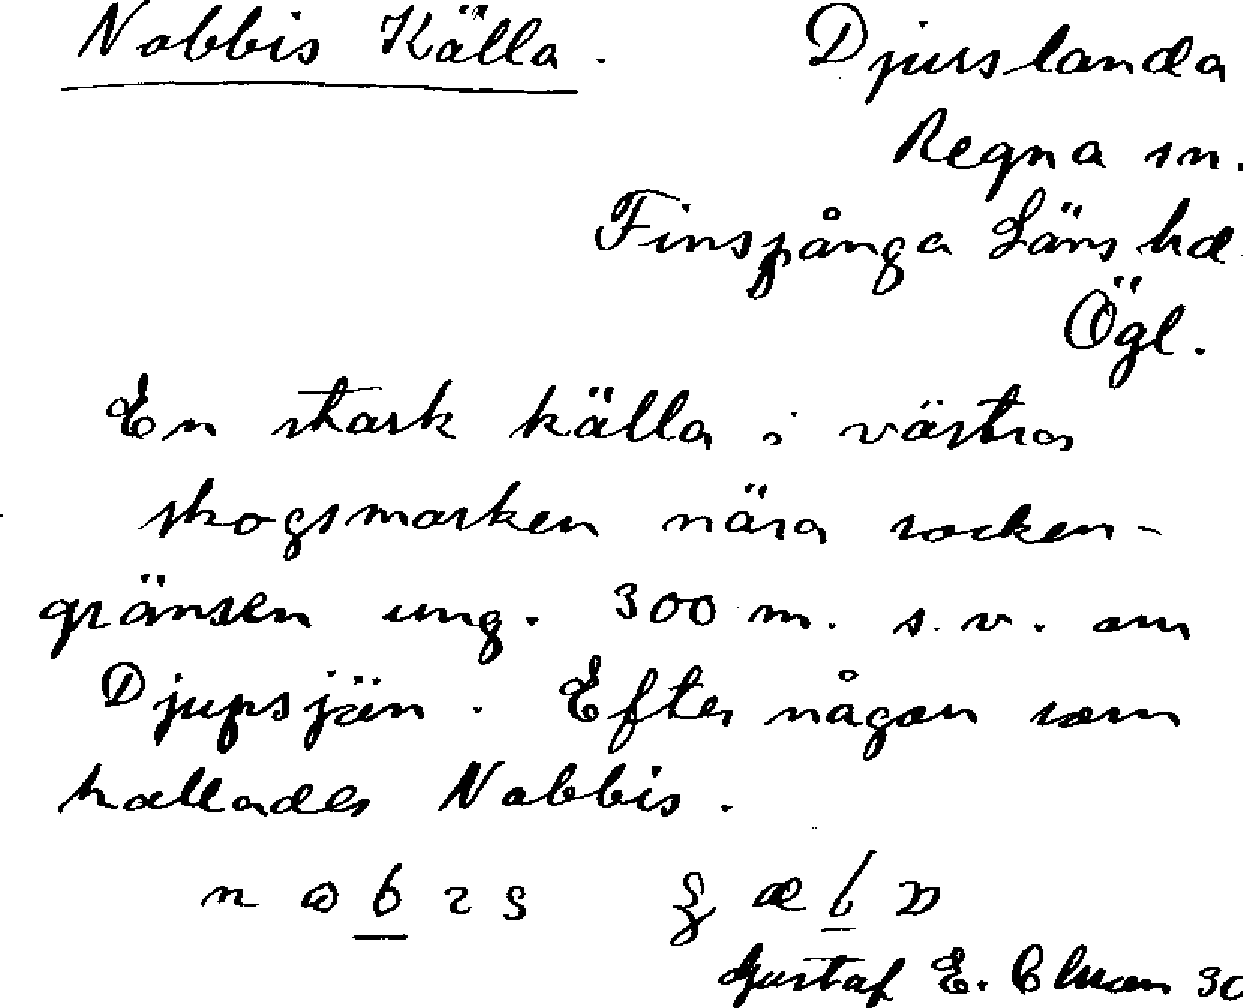 Nabbis Källa. Djurslanda
Regna sn.
Finspånga Läns hd.
Ögl.
En stark källa i västra
skogsmarken nära socken-
gränsen ung. 300 m. s.v. om
Djupsjön. Efter någon som
kallades Nabbis.
Gustaf E. 30